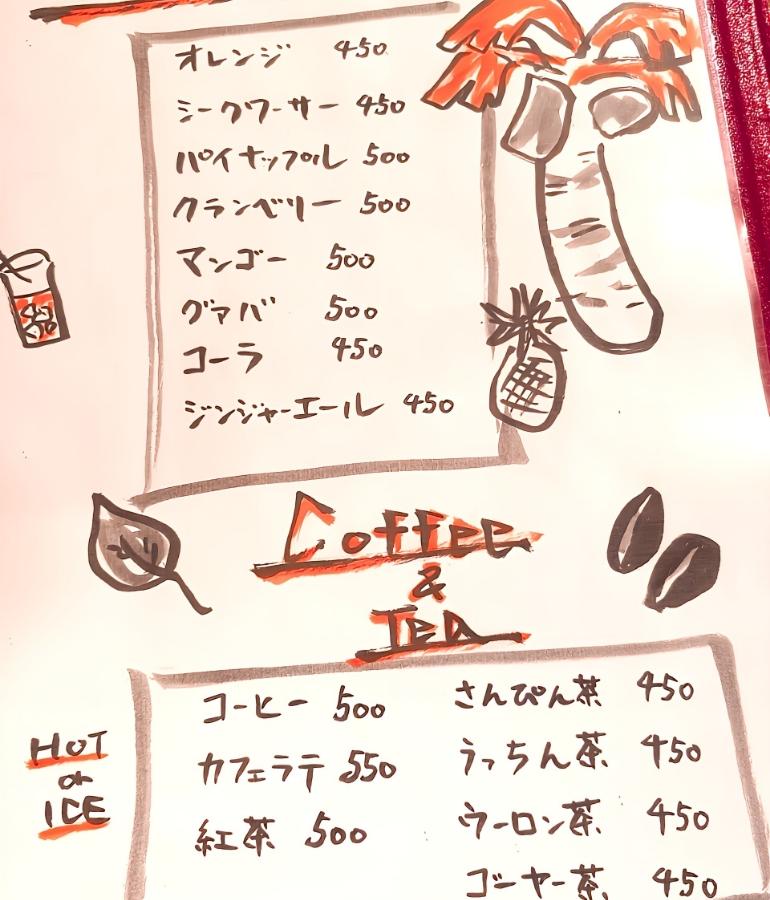 オレンジ 450
シークワーサー 450
パイナップル 500
クランベリー 500
マンゴー 500
グァバ 500
コーラ 450
ジンジャーエール 450
Coffee
&
TEA
HOT
or
ICE
コーヒー 500
カフェラテ 550
紅茶 500
さんぴん茶 450
うっちん茶 450
ウーロン茶 450
ゴーヤー茶 450